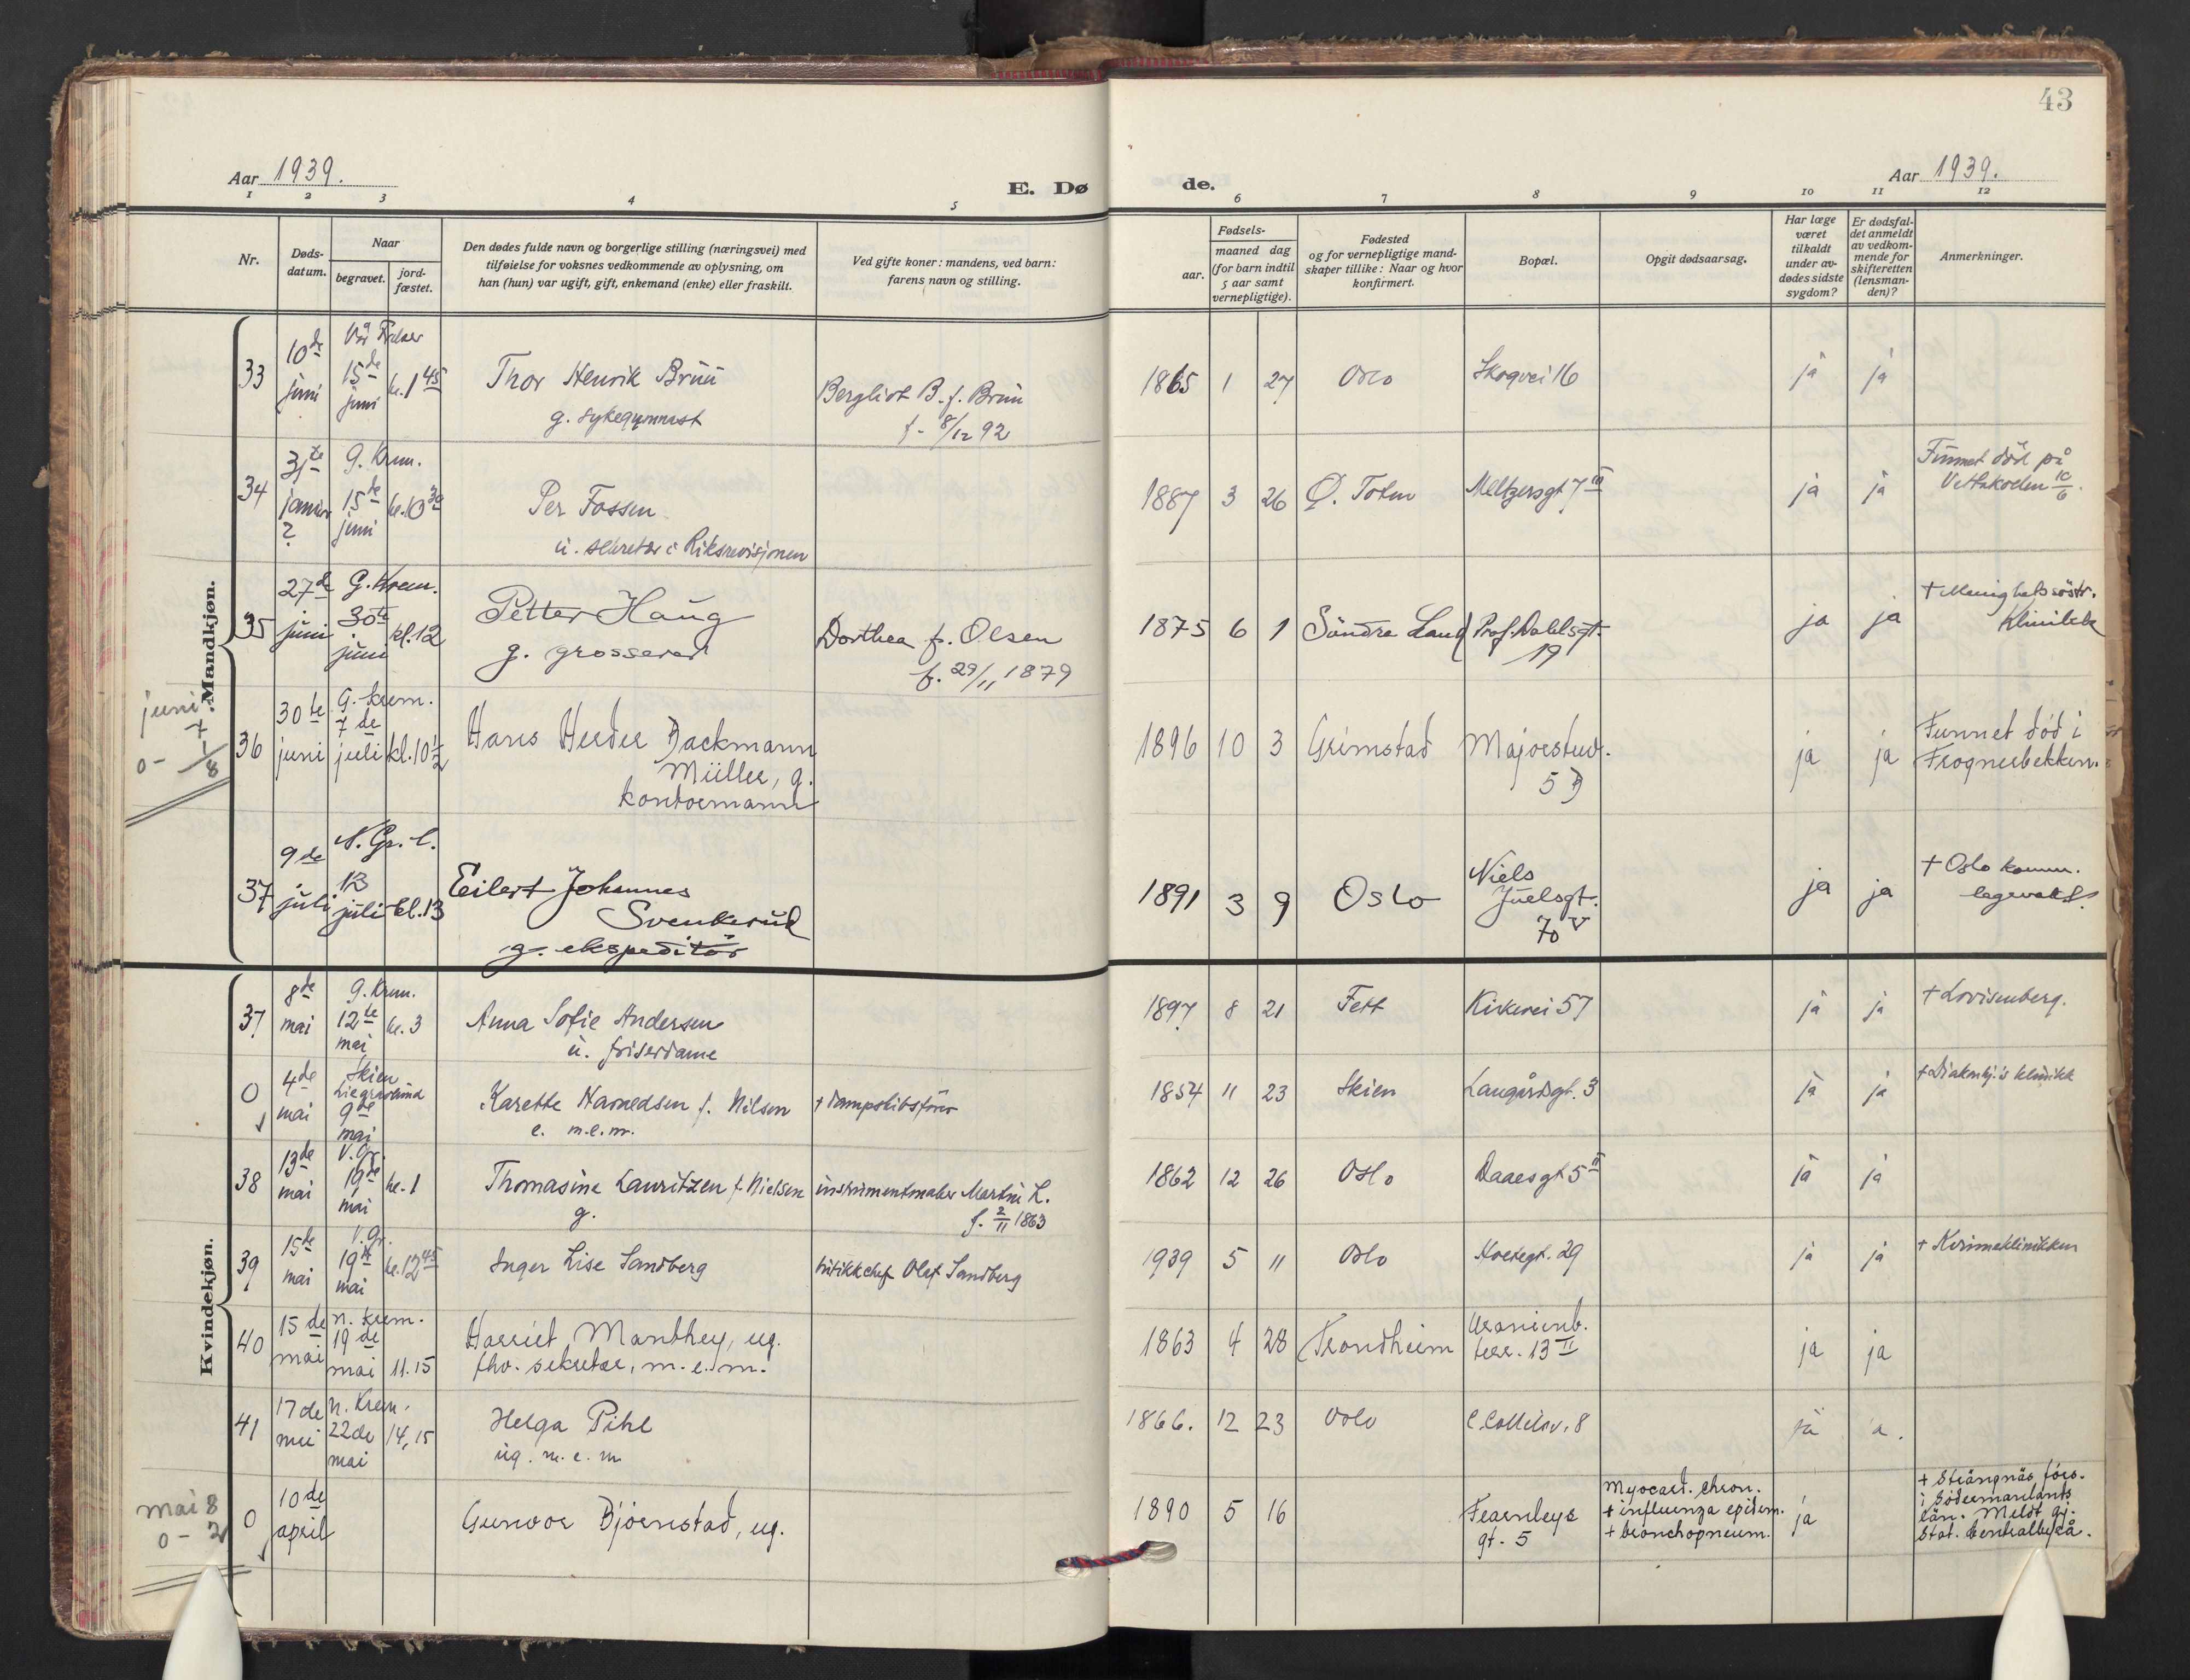 43
Aar 1939.
E. Dø
de.
Aar 1939.
1 2 3 4 5 6 7 8 9 10 11 12
Nr.
Døds-
datum.
Naar
begravet.
jord-
fæstet.
Den dødes fulde navn og borgerlige stilling (næringsvei) med
tilføielse for voksnes vedkommende av oplysning, om
han (hun) var ugift, gift, enkemand (enke) eller fraskilt.
Ved gifte koner: mandens, ved barn:
farens navn og stilling.
Fødsels-
aar.
maaned dag
(for barn indtil
5 aar samt
vernepligtige).
Fødested
og for vernepligtige mand-
skaper tillike: Naar og hvor
konfirmert.
Bopæl.
Opgit dødsaarsag.
Har læge
været
tilkaldt
under av-
dødes sidste
sygdom?
Er dødsfal-
det anmeldt
av vedkom-
mende for
skifteretten
(lensman-
den)?
Anmerkninger.
Mandkjøn.
33
10de
juni
Vår Frelser
15de
juni
kl. 1 45
Thor Henrik Bruu
g. sykegymnast
Bergliot B. f. Bruu
f. 8/12 92
1865 1 27 Oslo Skogvei 16 ja ja
34
31te
januar
?
G. Krem.
15de
juni
kl. 10 30
Per Fossen
u. sekretær i Riksrevisjonen
1887 3 26 Ø. Toten Meltzersgt 7 III ja ja
Funnet død på
Vettakollen 10/6.
35
27de
juni
G. Krem.
30te
juni
kl. 12
Petter Haug
g. grosserer
Dorthea f. Olsen
f. 29/11 1879
1875 6 1 Søndre Land Prof. Dahlsgt.
19
ja ja
+ Menighetssøstr.
Klinikk
juni
7
1
0 - 8
36
30te
juni
G. krem.
7de
juli
kl. 10 1/2
Hans Herder Backmann
Müller, g.
kontormann
1896 10 3 Grimstad Majorstuv.
5 B
ja ja
Funnet død i
Frognerbekken.
37
9de
juli
N. Gr. l.
13
juli
kl. 13
Eilert Johannes
Svenkerud
g. ekspeditør
1891 3 9 Oslo
Niels
Juelsgt.
70 V
ja ja
+ Oslo komm.
legevakt.
Kvindekjøn.
37
8de
mai
G. Krem.
12te
mai
kl. 3
Anna Sofie Andersen
u. friserdame
1897 8 21 Fett Kirkevei 57 ja ja + Lovisenberg.
0
4de
mai
Skien
9de
mai
Karette Havnedsen f. Nilsen
e. m.e.m.
+ dampskibsfører
1854 11 23 Skien Langårdsgt. 3 ja ja + Diakonhj.'s klinikk
38
13de
mai
V. Gr.
19de
mai
kl. 1
Thomasine Lauritzen f. Nielsen
g.
instrumentmaker Martin L.
f. 2/11 1863
1862 12 26 Oslo Daaesgt 5 II ja ja
39
15de
mai
V. Gr.
19de
mai
kl. 12 45
Inger Lise Sandberg
butikkchef Olaf Sandberg
1939 5 11 Oslo Holtegt. 29 ja ja + Kvinneklinikken
40
15de
mai
N. krem.
19de
mai
11.15
Harriet Manthey, ug.
fhv. sekretær, m.e.m.
1863 4 28 Trondheim
Uranienb.
terr. 13 II
ja ja
41
17de
mai
N. Krem.
22de
mai
14,15
Helga Pihl
ug. m.e.m
1866. 12 23 Oslo C. Collettsv. 8 ja a.
mai 8
0 - 2
0
10de
april
Gunvor Bjørnstad, ug.
1890 5 16
Fearnleys
gt. 5
Myocard. chron.
+ influenza epidem.
+ bronchopneum.
ja
+ Strängnäs förs.
i Södermanlands
län. Meldt gj.
Stat. Centralbyrå.